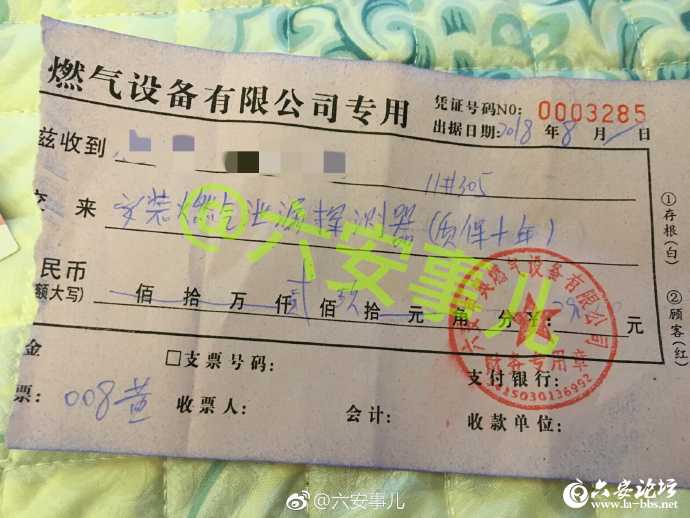 燃气设备有限公司专用
凭证号码NO: 0003285
出据日期: 2018 年 8 月 日
兹收到
11#305
交 来 安装燃气泄漏探测器(质保十年)
民币
额大写) 佰 拾 万 仟 贰 佰 玖 拾 元 角 分 ¥: 元
金 □支票号码: 支付银行:
票: 008 黄 收票人: 会计: 收款单位:
①存根(白)
②顾客(红)
燃气设备有限公司
财务专用章
@六安事儿
@六安事儿
六安论坛
www.la-bbs.net